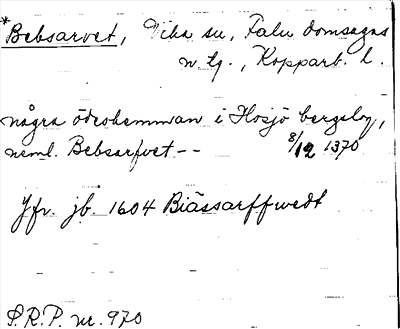 *Bebsarvet, Vika sn, Falu domsagas
n. tg., Kopparb. l.
några ödeshemman i Hosjö bergslag,
neml. Bebsarfvet -- 8/12 1370
Jfr. jb. 1604 Biässarffwedt
S.R.P. nr. 970